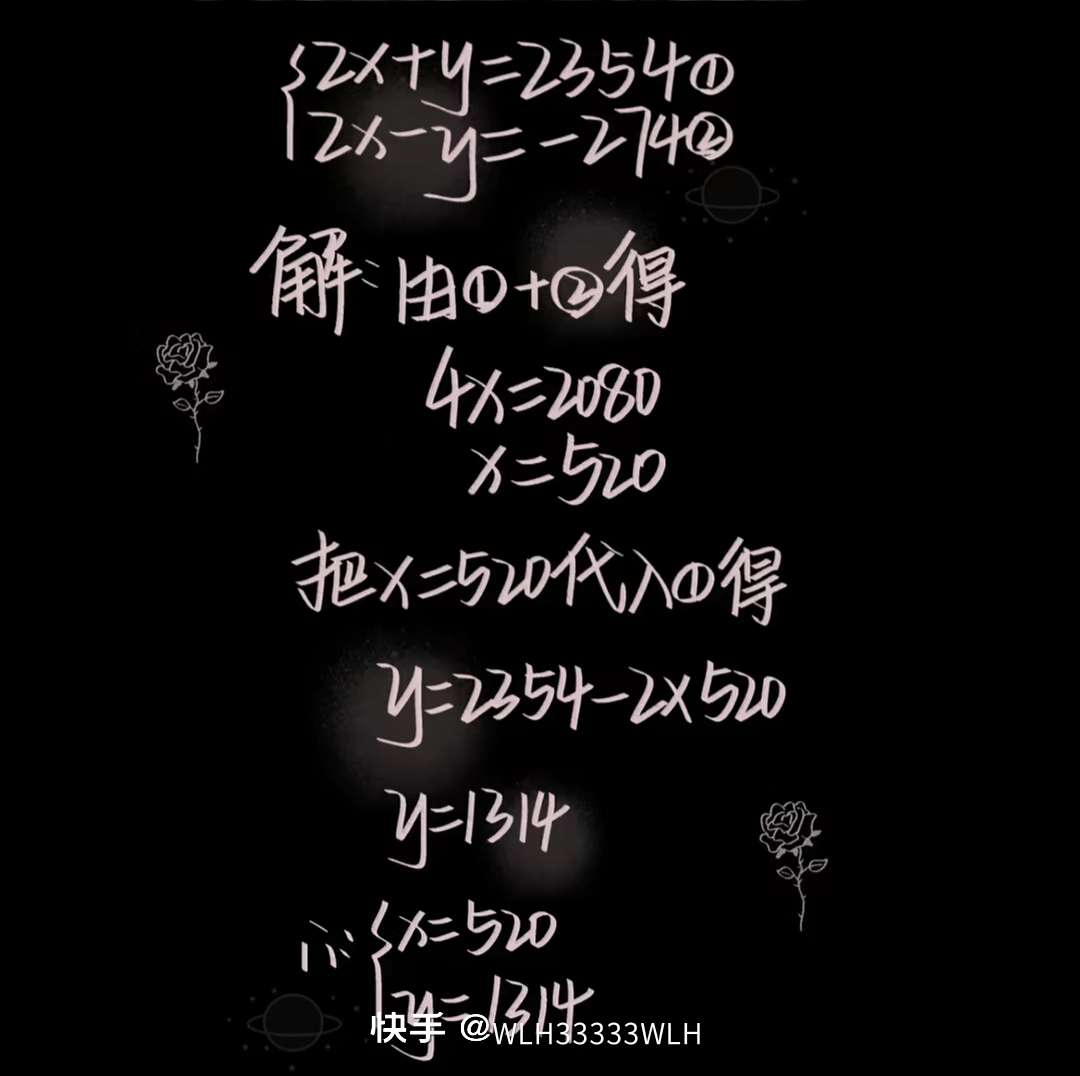 {2x+y=2354①
2x-y=-274②
解:由①+②得
4x=2080
x=520
把x=520代入①得
y=2354-2x520
y=1314
∴{x=520
y=1314
快手 @WLH33333WLH